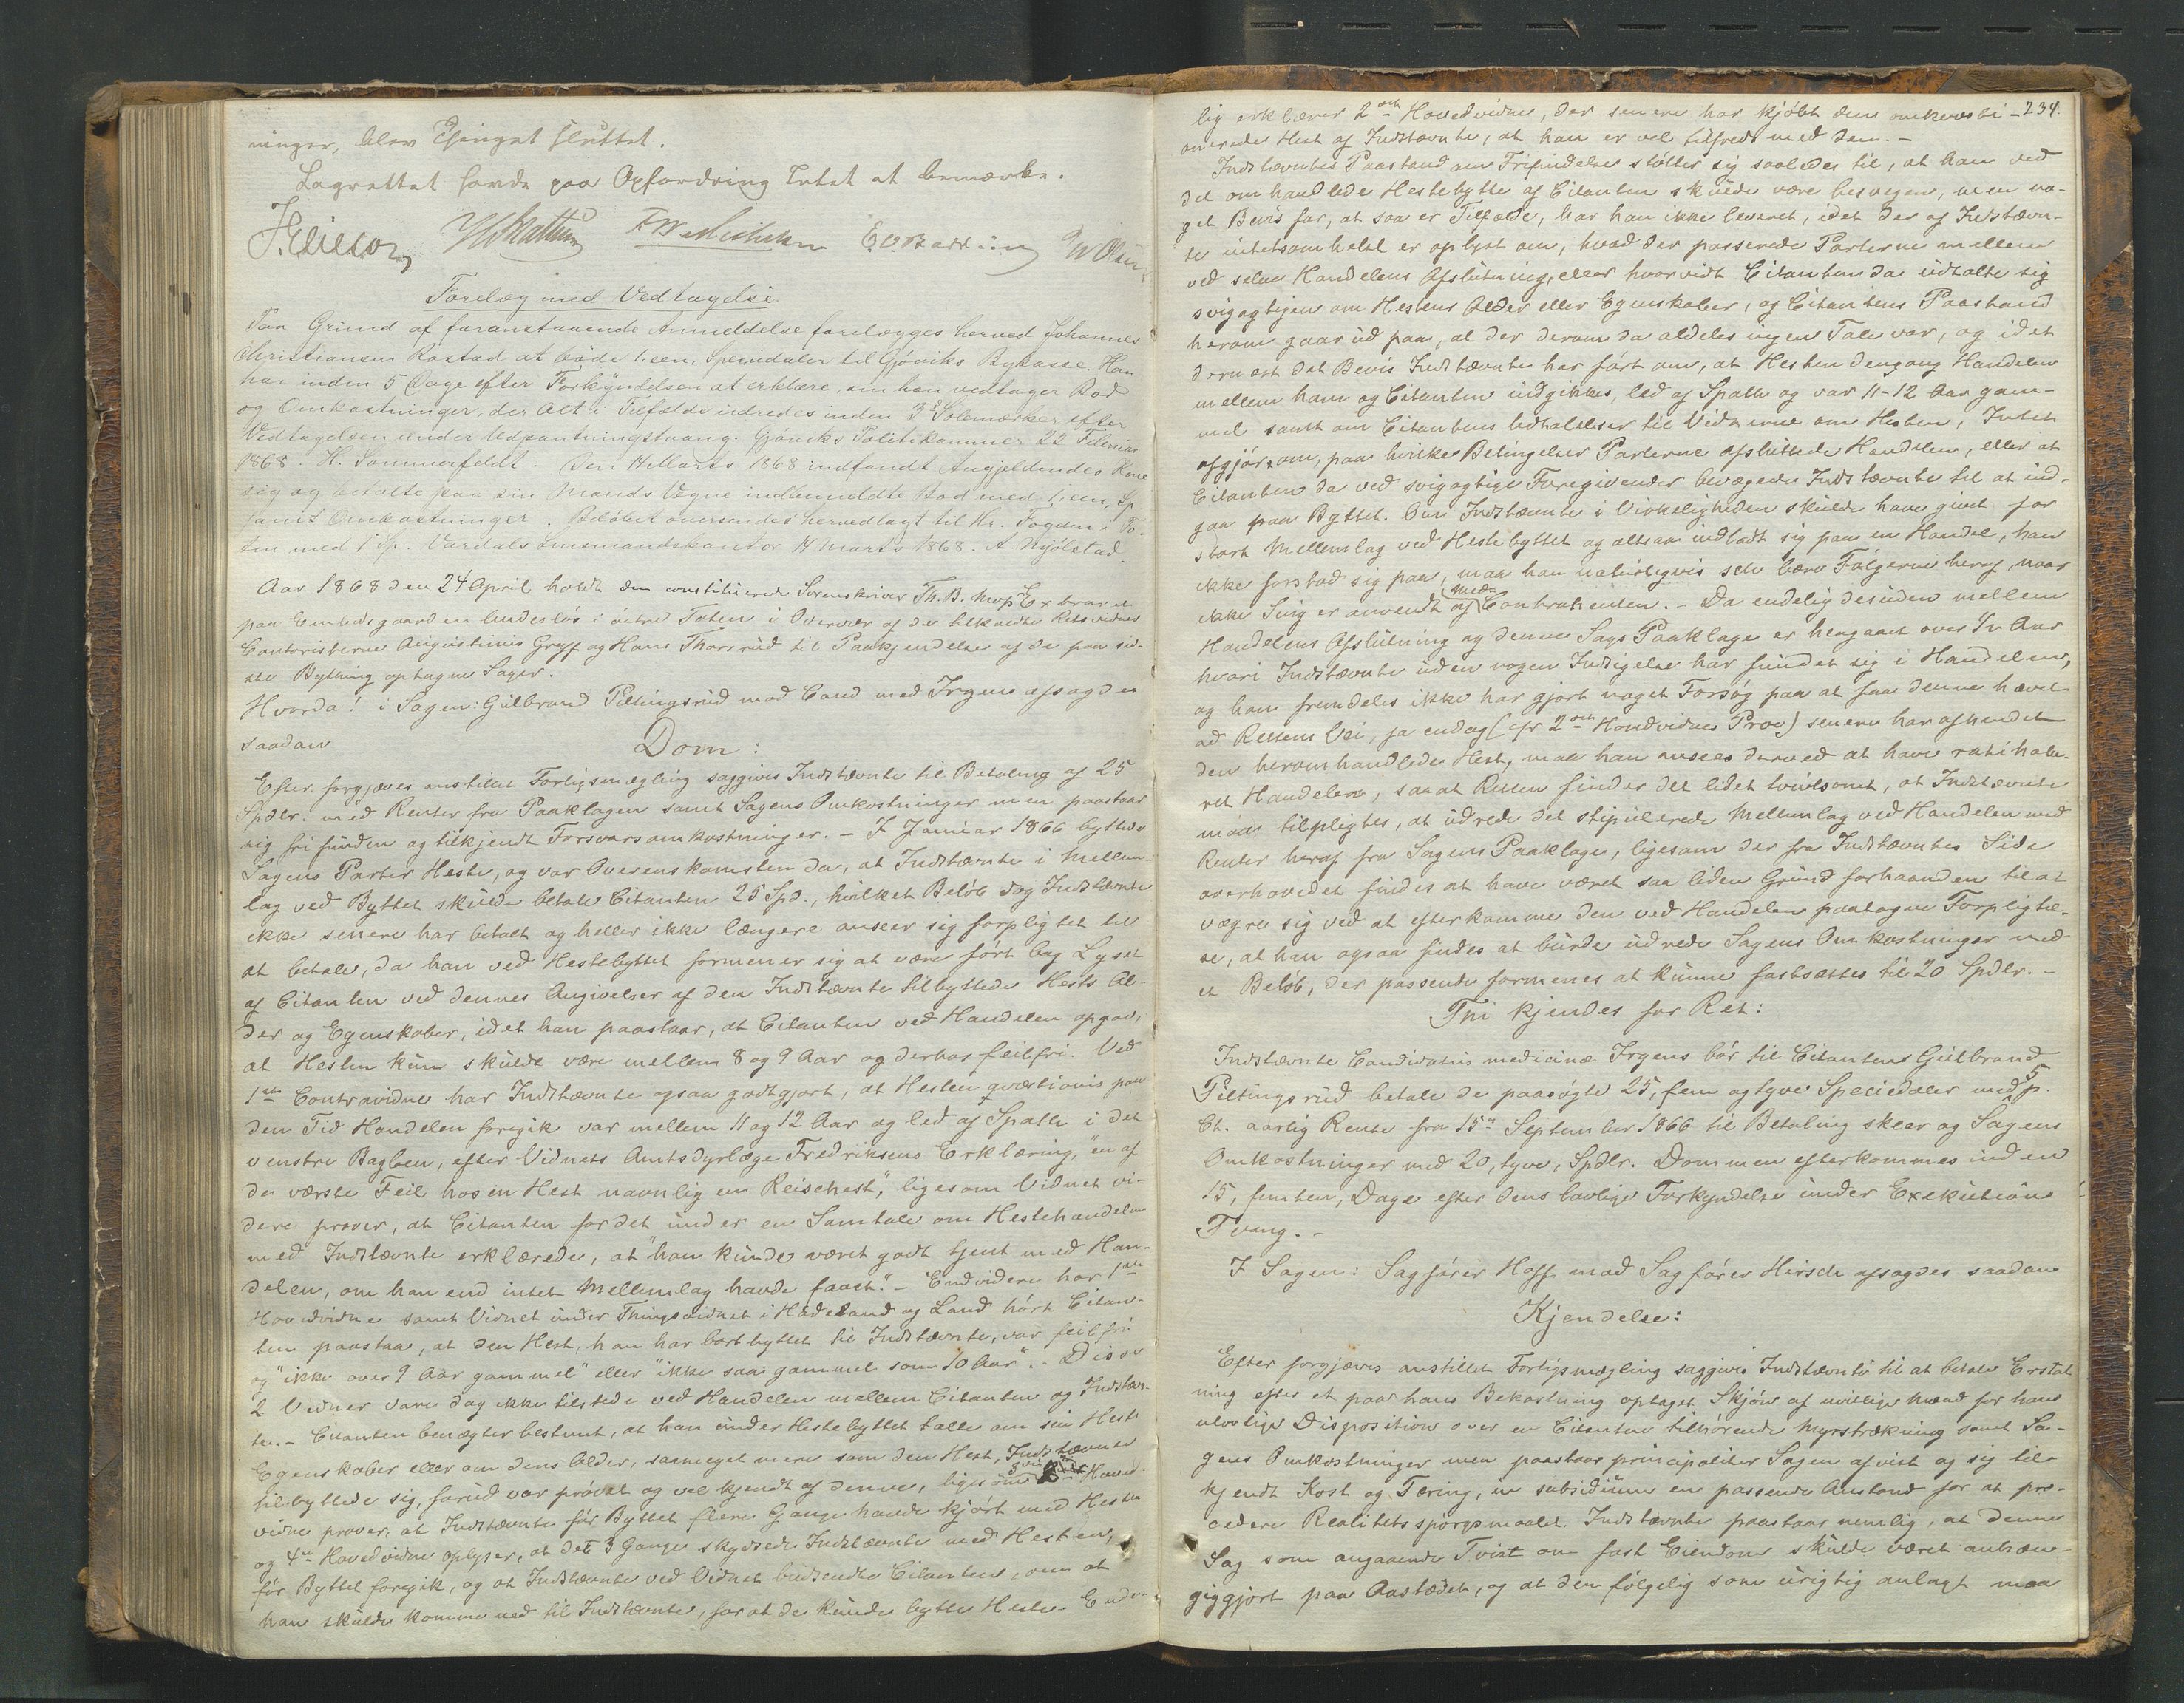 ninger, blev Thinget sluttet.
Lagrettet havde paa Opfordring Intet at bemærke.
Forelæg med Vedtagelse
Paa Grund af foranstaaende Anmeldelse forelægges herved Johannes
Christiansen Rostad at bøde 1, een, Speciedaler til Gjøviks Bykasse. Han
har inden 5 Dage efter Forkyndelsen at erklære, om han vedtager Bod
og Omkostninger, der Alt i Tilfælde udredes inden 3de Solemærker efter
Vedtagelsen under Udpantningstvang. Gjøviks Politikammer 22 Februar
1868. H. Sommerfeldt. Den 14 Marts 1868 indfandt Angjeldendes Kone
sig og betalte paa sin Mands Vegne indbemeldte Bod med 1, een, Sp
samt Omkostninger. Beløbet oversendes hervedlagt til Hr. Fogden i To-
ten med 1 Sp. Vardals Lensmandskontor 14 Marts 1868. A. Nyølstad
Aar 1868 den 24 April holdt den constituerede Sorenskriver Th. B. Extraret
paa Embedsgaarden Underløs i østre Toten i Overvær af de tilkaldte Retsvidner
Contoristerne Augustinus Gryf og Hans Thorsrud til Paakjendelse af de paa sid-
ste Bything optagne Sager.
Hvorda! i Sagen: Gulbrand Piltingsrud mod Cand. med Irgens afsagdes
saadan
Dom:
Efter forgjæves anstillet Forligsmægling saggives Indstævnte til Betaling af 25
Spdlr. med Renter fra Paaklagen samt Sagens Omkostninger men paastaar
sig frifunden og tilkjendt Forsvarsomkostninger. – I Januar 1866 byttede
Sagens Parter Heste, og var Overenskomsten da, at Indstævnte i Mellem-
lag ved Byttet skulde betale Citanten 25 Spd., hvilket Beløb dog Indstævnte
ikke senere har betalt og heller ikke længere anseer sig forpligtet til
at betale, da han ved Hestebyttet formener sig at være ført bag Lyset
af Citanten ved dennes Angivelser af den Indstævnte tilbyttede Hests Al-
der og Egenskaber, idet han paastaar, at Citanten ved Handelen opgav,
at Hesten kun skulde være mellem 8 og 9 Aar og derhos feilfri. Ved
1ste Contravidne har Indstævnte ogsaa godtgjort, at Hesten qvæstionis paa
den Tid Handelen foregik var mellem 11 og 12 Aar og led af Spatte i det
venstre Bagben, efter Vidnets Amtsdyrlæge Fredriksens Erklæring, "en af
de værste Feil hos en Hest navnlig en Reisehest", ligesom Vidnet vi-
dere prover, at Citanten for det under en Samtale om Hestehandelen
med Indstævnte erklærede, at "han kunde været godt tjent med Han-
delen, om han end intet Mellemlag havde faaet." – Endvidere har 1ste
Hovedvidne samt Vidnet under Thingsvidnet i Hadeland og Land hørt Citan-
ten paastaa, at den Hest, han har bortbyttet til Indstævnte, var feilfri
og "ikke over 9 Aar gammel" eller "ikke saa gammel som 10 Aar". – Disse
2 Vidner vare dog ikke tilstede ved Handelen mellem Citanten og Indstævn-
te. – Citanten benægter bestemt, at han under Hestebyttet talte om sin Hests
Egenskaber eller om dens Alder, saameget mere som den Hest, Indstævnte
tilbyttede sig, forud var prøvet og vel kjendt af denne, ligesom 3die Hoved-
vidne prover, at Indstævnte før Byttet flere Gange havde kjørt med Hesten
og 4de Hovedvidne oplyser, at det 3 Gange skydsede Indstævnte med Hesten,
før Byttet foregik, og at Indstævnte ved Vidnet budsendte Citanten, om at
han skulde komme ned til Indstævnte, for at de kunde bytte Heste. Ende-
234.
lig erklærer 2det Hovedvidne, der senere har kjøbt den omkvesti-
onerede Hest af Indstævnte, at han er vel tilfreds med den. –
Indstævntes Paastand om Frifindelse støtter sig saaledes til, at han ved
det omhandlede Hestebytte af Citanten skulde være besvegen, men no-
get Bevis for, at saa er Tilfælde, har han ikke leveret, idet der af Indstævn-
te intetsomhelst er oplyst om, hvad der passerede Parterne mellem
ved selve Handelens Afslutning, eller hvorvidt Citanten da udtalte sig
svigagtigen om Hestens Alder eller Egenskaber, og Citantens Paastand
herom gaar ud paa, at der derom da aldeles ingen Tale var, og idet
dernæst det Bevis Indstævnte har ført om, at Hesten dengang Handelen
mellem ham og Citanten indgikkes, led af Spatte og var 11-12 Aar gam-
mel samt om Citantens Udtalelser til Vidnerne om Hesten, Intet
afgjør om, paa hvilke Betingelser Parterne afsluttede Handelen, eller at
Citanten da ved svigagtige Foregivender bevægede Indstævnte til at ind-
gaa paa Byttet. Om Indstævnte i Virkeligheden skulde have givet for
stort Mellemlag ved Hestebyttet og altsaa indladt sig paa en Handel, han
ikke forstod sig paa, maa han naturligvis selv bære Følgerne heraf, naar
ikke Svig er anvendt af Medcontrahenten. – Da endelig desuden mellem
Handelens Afslutning og denne Sags Paaklage er hengaaet over 1/2 Aar
hvori Indstævnte uden nogen Indsigelse har fundet sig i Handelen,
og han fremdeles ikke har gjort noget Forsøg paa at faa denne hævet
ad Rettens Vei, ja endog (cfr 2det Hovedvidnes Prov) senere har afhændet
den heromhandlede Hest, maa han ansees derved at have ratihabe-
ret Handelen, saa at Retten finder det lidet tvivlsomt, at Indstævnte
maa tilpligtes, at udrede det stipulerede Mellemlag ved Handelen med
Renter heraf fra Sagens Paaklage, ligesom der fra Indstævntes Side
overhovedet findes at have været saa liden Grund forhaanden til at
vægre sig ved at efterkomme den ved Handelen paatagne Forpligtel-
se, at han ogsaa findes at burde udrede Sagens Omkostninger med
et Beløb, der passende formenes at kunne fastsættes til 20 Spdlr. –
Thi kjendes for Ret:
Indstævnte Candidatus medicinæ Irgens bør til Citanten Gulbrand
Piltingsrud betale de paasøgte 25, fem og tyve Speciedaler med 5 p.
Ct. aarlig Rente fra 15de September 1866 til Betaling skeer og Sagens
Omkostninger med 20, tyve, Spdlr. Dommen efterkommes inden
15, femten, Dage efter dens lovlige Forkyndelse under Exekutions
Tvang. –
I Sagen: Sagfører Hoff mod Sagfører Hirsch afsagdes saadan
Kjendelse:
Efter forgjæves anstillet Forligsmægling saggives Indstævnte til at betale Erstat-
ning efter et paa hans Bekostning optaget Skjøn af uvillige Mænd for hans
ulovlige Disposition over en Citanten tilhørende Myrstrækning samt Sa-
gens Omkostninger men paastaar principaliter Sagen afvist og sig til-
kjendt Kost og Tæring, in subsidium en passende Anstand for at pro-
cedere Realitetsspørgsmaalet. Indstævnte paastaar nemlig, at denne
Sag som angaaende Tvist om fast Eiendom skulde været anhæn-
giggjort paa Aastedet, og at den følgelig som urigtig anlagt maa